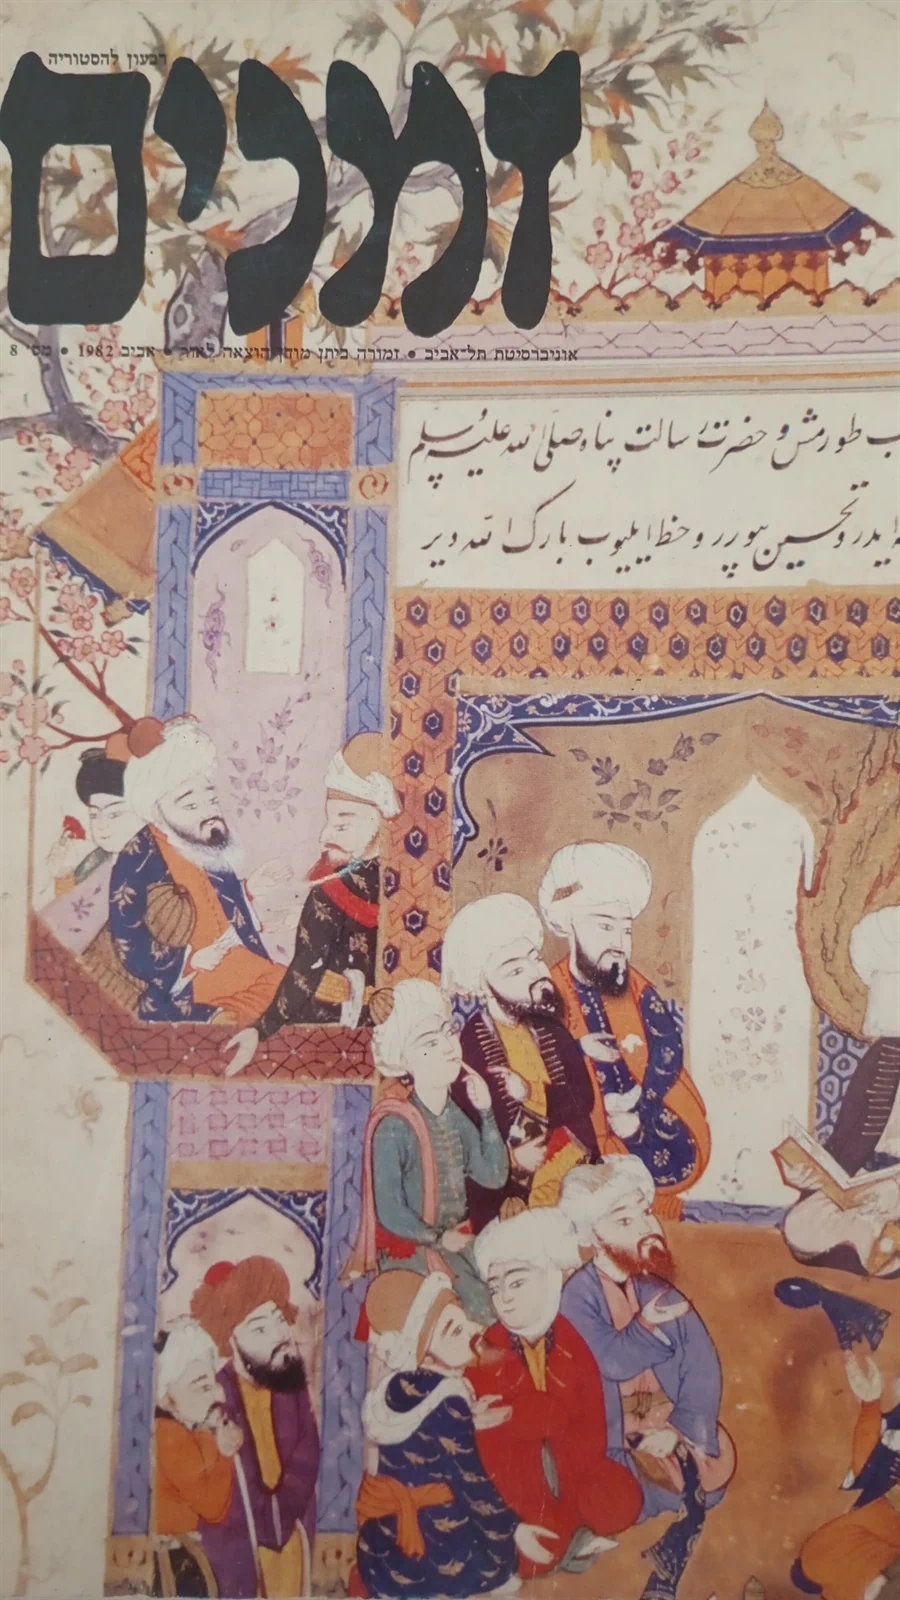 רבעון להסטוריה
זמנים
אוניברסיטת תל־אביב • זמורה ביתן מודן הוצאה לאור • אביב 1982 • מס׳ 8
طورمش و حضرت رسالت پناه صلى الله عليه وسلم
ايدر و تحسين بيورر و حظ ايليوب بارك الله دير